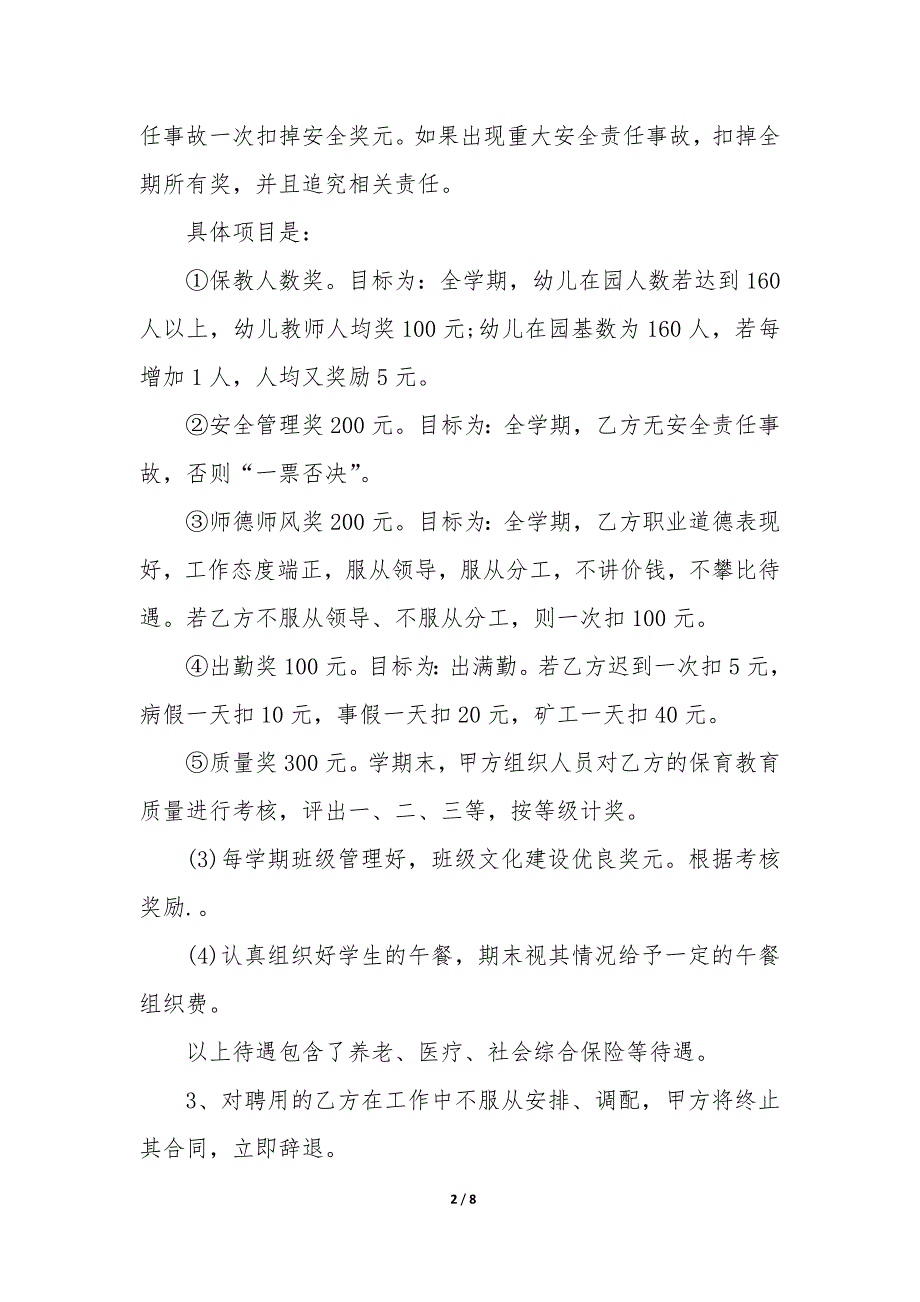 任事故一次扣掉安全奖元。如果出现重大安全责任事故，扣掉全
期所有奖，并且追究相关责任。
具体项目是：
①保教人数奖。目标为：全学期，幼儿在园人数若达到 160
人以上，幼儿教师人均奖 100 元;幼儿在园基数为 160 人，若每
增加 1 人，人均又奖励 5 元。
②安全管理奖 200 元。目标为：全学期，乙方无安全责任事
故，否则“一票否决”。
③师德师风奖 200 元。目标为：全学期，乙方职业道德表现
好，工作态度端正，服从领导，服从分工，不讲价钱，不攀比待
遇。若乙方不服从领导、不服从分工，则一次扣 100 元。
④出勤奖 100 元。目标为：出满勤。若乙方迟到一次扣 5 元，
病假一天扣 10 元，事假一天扣 20 元，矿工一天扣 40 元。
⑤质量奖 300 元。学期末，甲方组织人员对乙方的保育教育
质量进行考核，评出一、二、三等，按等级计奖。
(3)每学期班级管理好，班级文化建设优良奖元。根据考核
奖励.。
(4)认真组织好学生的午餐，期末视其情况给予一定的午餐
组织费。
以上待遇包含了养老、医疗、社会综合保险等待遇。
3、对聘用的乙方在工作中不服从安排、调配，甲方将终止
其合同，立即辞退。
2 / 8